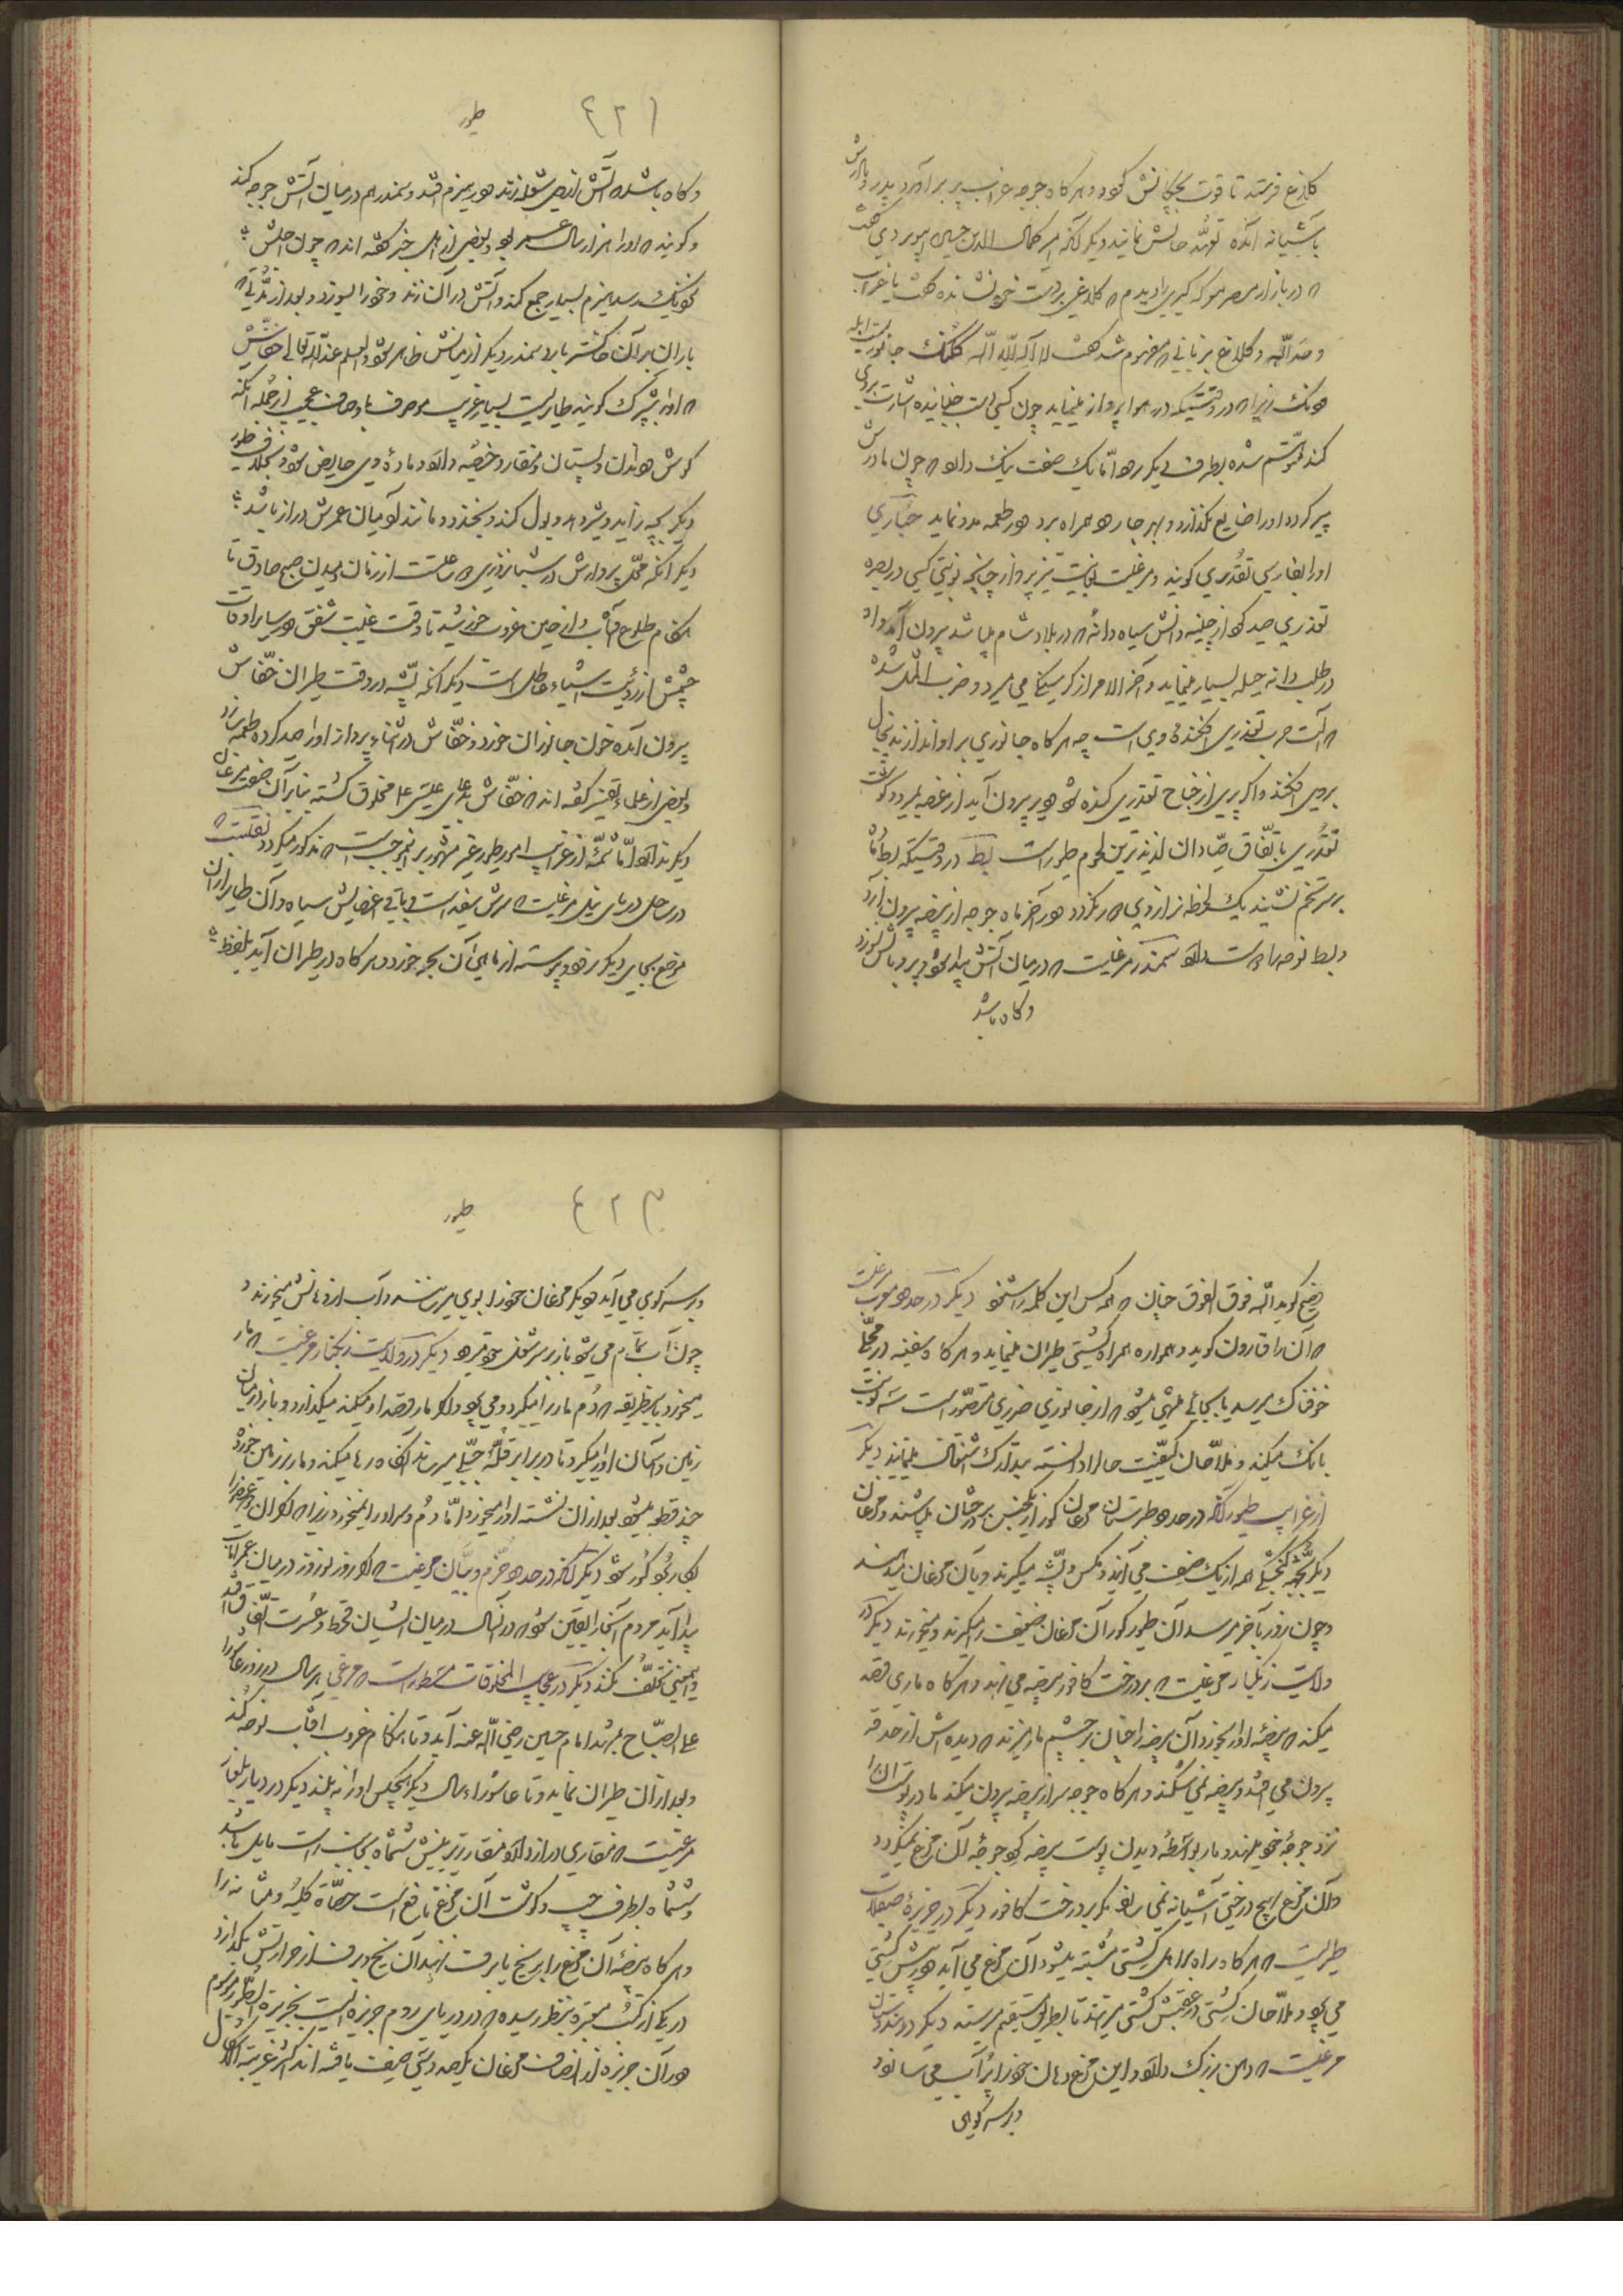 کلاغ فرستد تا قوت بچکانش کردد و هر کاه جوجه غراب پر بر آورد پدر و مادرش
بآشیانه آمده تعهّد حالش نمایند دیکر آنکه امیر کمال الدین حسین ابیوردی کفت
که در بازار مصر معرکه کیری را دیدم که کلاغی بر دست خود نشانده کفت یا غراب
وحّد اللّه و کلاغ بزبانی که مفهوم شد کفت لا آله الّا اللّه کلنک جانوریست ابله
در وقتیکه در هوا پرواز مینماید چون کسی دست جنبانیده اشارت بروی
کند متوهّم شده بطرف دیکر رود امّا یک صفت نیک دارد که چون مادرش
پیر کردد او را ضایع نکذارد و بهر جا رود همراه برد و طعمه بدو نماید حباری
او را بفارسی تغدری کویند و مرغیست بغایت تیز پرواز چنانچه نوبتی کسی در بصره
تغدری صید کرد از چینه دانش سیاه دانه که در بلاد شام میباشد بیرون آمد و او
در طلب دانه حیله بسیار مینماید و آخر الامر از کرسنکی می میرد و ضرب المثل شده
که آلت حرب تغدری افکندۀ وی است چه هر کاه جانوری بر او اندازند پیخال
بروی افکند و اکر پری از جناح تغدری کنده شود و پر بیرون آید از غصه بمیرد و کوشت
تغدری باتّفاق صیّادان لذیذ ترین لحوم طیور است بط در وقتیکه بط ماده
بر سر تخم نشیند یک لحظه نر از وی دور نکردد و در آخر ماه جوجه از بیضه بیرون آرد
و بط نوحه را دوست دارد سمندر مرغیست که در میان آتش پیدا شود و پر و بالش نسوزد
و کاه باشد
۴۲۱
طیور
و کاه باشد که آتش اندکی شعله زند و هیزم افتد و سمندر هم در میان آتش جوجه کند
و کویند که او را هزار سال عمر بود و بعضی از اهل خبر کفته اند که چون اجلش
نزدیک رسد هیزم بسیار جمع کند و آتش در آن زند و خود را بسوزد و بعد از مدّتی که
باران بر آن خاکستر بارد سمندر دیکر از میانش ظاهر شود و العلم عند اللّه تعالی خفّاش
که او را شبّرک کویند طایریست بسیار غریب موصوف باوصاف عجیب از جمله آنکه
کوش و دندان و پستان و منقار و خصیه دارد و مادۀ وی حایض شود و بخلاف طیور
دیکر بچه زاید و شیر دهد و بول کند و بخندد و مانند آدمیان عمرش دراز باشد
دیکر آنکه محلّ پروازش در شبانروزی دو ساعتست از زمان دمیدن صبح صادق تا
هنکام طلوع آفتاب و از حین غروب خورشید تا وقت غیبت شفق و در سایر اوقات
چشمش از رؤیت اشیاء عاطل است دیکر آنکه پشّه در وقت طیران خفّاش
بیرون آمده خون جانوران خورد و خفّاش در اثناء پرواز او را صید کرده طعمه سازد
و بعضی از علماء تفسیر کفته اند که خفّاش بدعای عیسی ع مخلوق کشته بنا بر آن
دیکر ندارد امّا شمّه از غرایب امور طیور غیر مشهور بر انموجبست که مذکور میکردد نقلست که
در ساحل دریای نیل مرغیست که سرش سفید است و باقی اعضایش سیاه و آن طایر از آن
موضع بجای دیکر نرود و پیوسته از ماهی آن بحر خورد و هر کاه در طیران آید بلفظ
فصیح کوید اللّه فوق الفوق چنان که همه کس این کلمه را شنود دیکر در حدود مغرب مرغیست
که آن را قارون کویند و همواره همراه کشتی طیران مینماید و هر کاه سفینه در محلّی
خوفناک برسد یا بجائی منتهی میشود که از جانوری ضرری متصوّر است سه نوبت
بانک میکند و ملّاحان کیفیّت حال را دانسته بتدارک اشتغال مینمایند دیکر
از غرایب طیور آنکه در حدود طبرستان مرغان کور از یکجنس بر درختان میباشند و مرغان
دیکر بجثّه کنجشکی همه از یک صنف می آیند و مکس و پشّه میکیرند و بآن مرغان میدهند
و چون روز بآخر میرسد آن طیور کور آن مرغان ضعیف را میکیرند و میخورند دیکر در
ولایت زنکبار مرغیست که بر درخت کافور بیضه می نهد و هر کاه ماری قصد
میکند که بیضۀ او را بخورد آن بیضه را چنان بر چشم مار میزند که دیده اش از حدقه
بیرون می افتد و بیضه نمی شکند و هر کاه جوجه سر از بیضه بیرون میکند مادر پوست آن را
نزد جوجۀ خود می نهد و مار بواسطۀ دیدن پوست بیضه کرد جوجۀ آن مرغ نمیکردد
و آن مرغ هیچ درختی آشیانه نمی سازد مکر بر درخت کافور دیکر در جزیرۀ صقلاب
طایریست که هر کاه راه بر اهل کشتی مشتبه میشود آن مرغ می آید و در پیش کشتی
می رود و ملّاحان کشتی در عقبش کشتی میرانند تا بطریق مستقیم میرسند دیکر در هندوستان
مرغیست که دهن بزرک دارد و این مرغ دهان خود را پُر آب می سازد
و بر سر کوهی
۴۲۲
طیور
و بر سر کوهی می آید و دیکر مرغان خود را بوی میرسانند و آب از دهانش میخورند و
چون آب تمام می شود باز بر سر شغل خود میرود دیکر در ولایت زنکبار مرغیست که مار
میخورد باین طریقه که دُم مار را میکیرد و می برد و اکر مار قصد او میکند میکذارد و باز در میان
زمین و آسمان او را میکیرد تا در برابر قلّۀ جبلی میرساند آنکاه رها میکند و مار بر زمین خورده
چند قطعه میشود بعد از آن نشسته او را میخورد امّا دُم و سر او را نمیخورد زیرا که اکر آن دو عضو را
بکار برد کور شود دیکر آنکه در حدود خرّم و بیان مرغیست که اکر روز نوروز در میان عمرانات
پیدا آید مردم آنجا را یقین شود که در آنسال در میان ایشان قحط و عُسرت اتّفاق افتد
و اینمعنی تخلّف نکند دیکر در عجایب المخلوقات مسطور است که مرغی هر سال در روز عاشورا
علی الصبّاح بمرقد امام حسین رضی اللّه عنه آید و تا هنکام غروب آفتاب نوحه کند
و بعد از آن طیران نماید و تا عاشوراء سال دیکر هیچکس او را نه بیند دیکر در دیار بلغار
مرغیست که منقاری دراز دارد و منقار زیرینش ششماه بجانب راست مایل باشد
و ششماه بطرف چپ و کوشت آن مرغ نافع است حصاة کلیه و مثانه را
و هر کاه بیضۀ آن مرغ را بر یخ یا برف نهند آن یخ و برف از حرارتش بکدازد
در یکی از کتب معتبره بنظر رسیده که در دریای روم جزیره ایست بجزیرة الطّیور موسوم
و در آن جزیره از اصناف مرغان یکصد و سی صنف یافته اند اکثر غریبة الاشکال